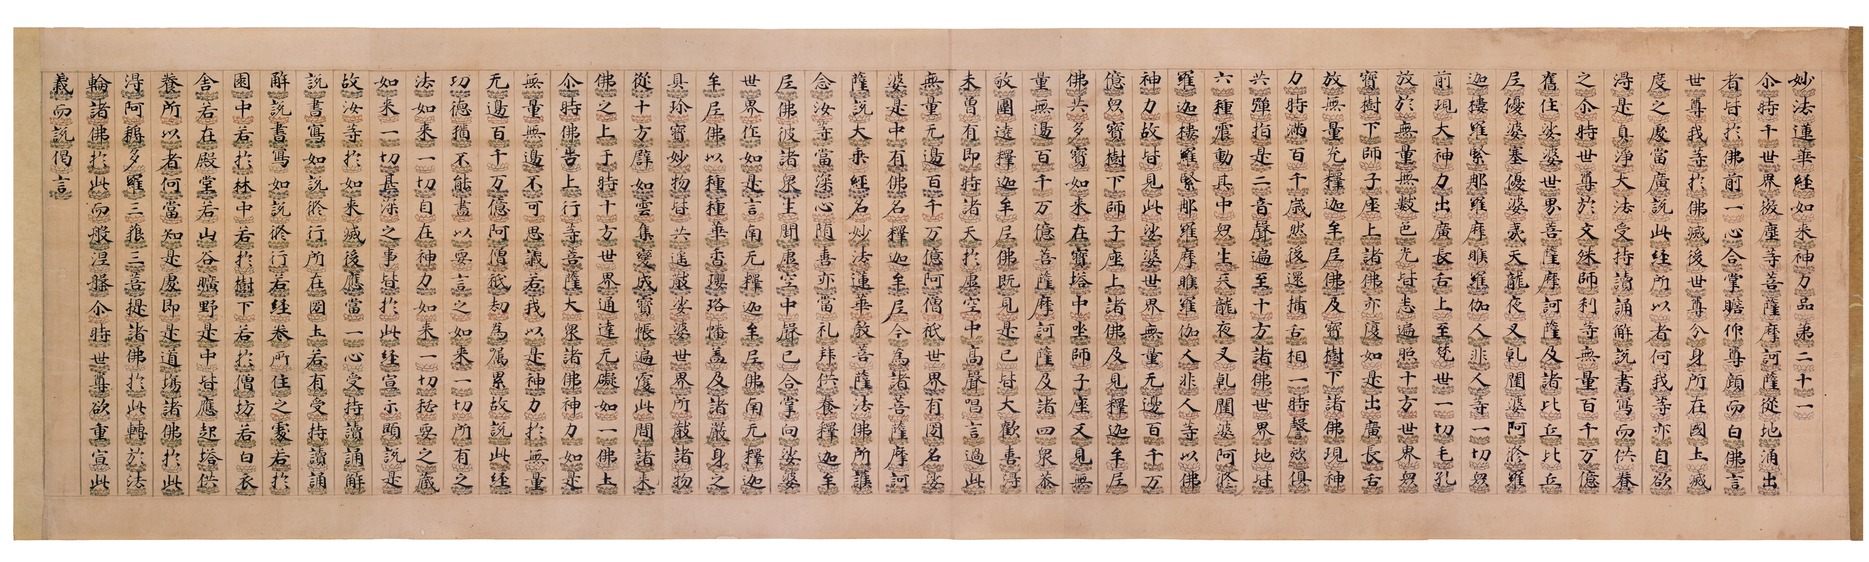 妙法蓮華経如来神力品第二十一
尒時千世界微塵等菩薩摩訶薩從地涌出
者皆於佛前一心合掌瞻仰尊顔而白佛言
世尊我等於佛滅後世尊分身所在國土滅
度之處當廣說此經所以者何我等亦自欲
得是真淨大法受持讀誦解說書寫而供養
之尒時世尊於文殊師利等無量百千万億
舊住娑婆世界菩薩摩訶薩及諸比丘比丘
尼優婆塞優婆夷天龍夜叉乹闥婆阿脩羅
迦樓羅緊那羅摩睺羅伽人非人等一切衆
前現大神力出廣長舌上至梵世一切毛孔
放於無量無數色光皆悉遍照十方世界衆
寶樹下師子座上諸佛亦復如是出廣長舌
放無量光釋迦牟尼佛及寶樹下諸佛現神
力時滿百千歳然後還攝舌相一時謦欬俱
共彈指是二音聲遍至十方諸佛世界地皆
六種震動其中衆生天龍夜叉乹闥婆阿脩
羅迦樓羅緊那羅摩睺羅伽人非人等以佛
神力故皆見此娑婆世界無量无邊百千万
億衆寶樹下師子座上諸佛及見釋迦牟尼
佛共多寶如来在寶塔中坐師子座又見無
量無邊百千万億菩薩摩訶薩及諸四衆恭
敬圍遶釋迦牟尼佛既見是已皆大歡喜得
未曾有即時諸天於虚空中高聲唱言過此
無量无邊百千万億阿僧祇世界有國名娑
婆是中有佛名釋迦牟尼今為諸菩薩摩訶
薩說大乗經名妙法蓮華教菩薩法佛所護
念汝等當深心随喜亦當礼拜供養釋迦牟
尼佛彼諸衆生聞虚空中聲已合掌向娑婆
世界作如是言南无釋迦牟尼佛南无釋迦
牟尼佛以種種華香瓔珞幡盖及諸嚴身之
具珎寶妙物皆共遥散娑婆世界所散諸物
從十方譬如雲集變成寶帳遍覆此間諸来
佛之上于時十方世界通達无礙如一佛土
尒時佛告上行等菩薩大衆諸佛神力如是
無量無邊不可思議若我以是神力於無量
无邊百千万億阿僧祇劫為囑累故說此經
功德猶不能盡以要言之如来一切所有之
法如来一切自在神力如来一切秘要之藏
如来一切甚深之事皆於此經宣示顯說是
故汝等於如来滅後應當一心受持讀誦解
說書寫如說脩行所在國土若有受持讀誦
解說書寫如說脩行若經卷所住之處若於
園中若於林中若於樹下若於僧坊若白衣
舎若在殿堂若山谷曠野是中皆應起塔供
養所以者何當知是處即是道場諸佛於此
得阿耨多羅三藐三菩提諸佛於此轉於法
輪諸佛於此而般涅槃尒時世尊欲重宣此
義而說偈言